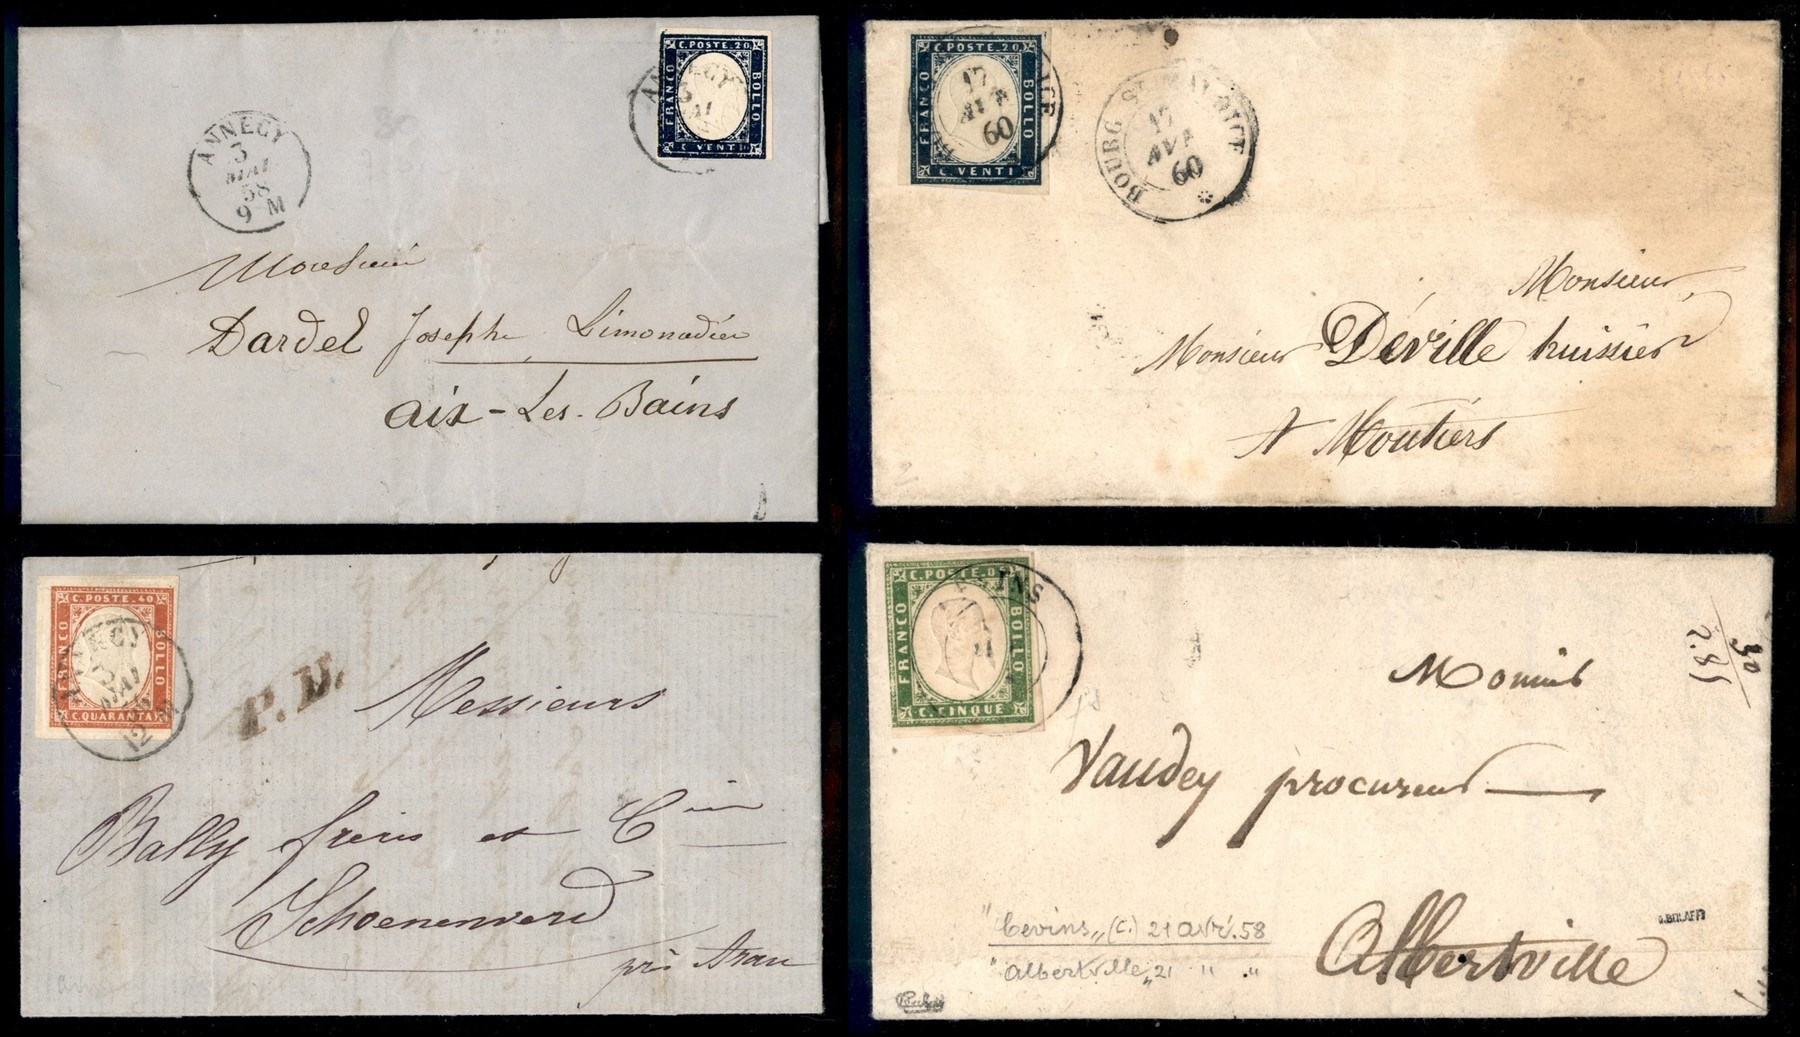 C. POSTE. 20
FRANCO
BOLLO
C. VENTI
ANNECY
3
MAI
ANNECY
3
MAI
58
9 M
Monsieur
Dardel Joseph Limonadier
aix-Les-Bains
C. POSTE. 20
FRANCO
BOLLO
C. VENTI
17
AVR
60
BOURG ST MAURICE
17
AVR
60
Monsieur
Monsieur Déville huissier
A Moutiers
C. POSTE. 40
FRANCO
BOLLO
C. QUARANTA
ANNECY
3
MAI
12
P.D.
Messieurs
Bally frères et Cie
Schoenenwerd
près Arau
C. POSTE. 0
FRANCO
BOLLO
C. CINQUE
21
30
2.85
Vaudey procureur
Albertville
"Cevins„ (C.) 21 avr. 58
"Albertville„ 21 " "
A. BOLAFFI